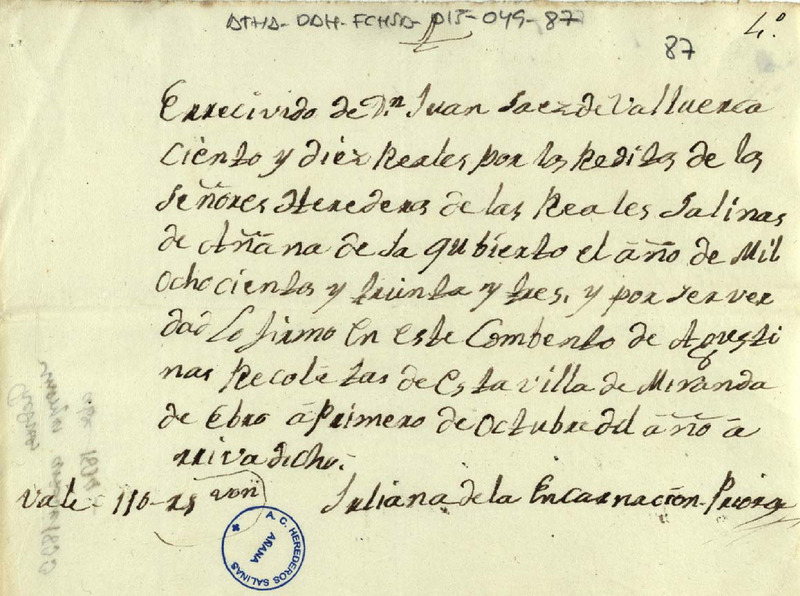 ATHA-DAH-FCHSA-015-049-87
87
4.º
Errecivido de Dn. Juan Saez de Valluerca
Ciento y diez Reales por los Reditos de los
Señores Herederos de las Reales Salinas
de Añana de Sa qubierto el año de Mil
Ochocientos y treinta y tres, y por ser ver
dad Lo firmo En este Combento de Agusti
nas Recoletas de Esta villa de Miranda
de Ebro á Primero de Octubre del año á
rriva dicho.
Vale 110-rs von
Juliana de la Encarnacion Priora
A. C. HEREDEROS SALINAS
AÑANA